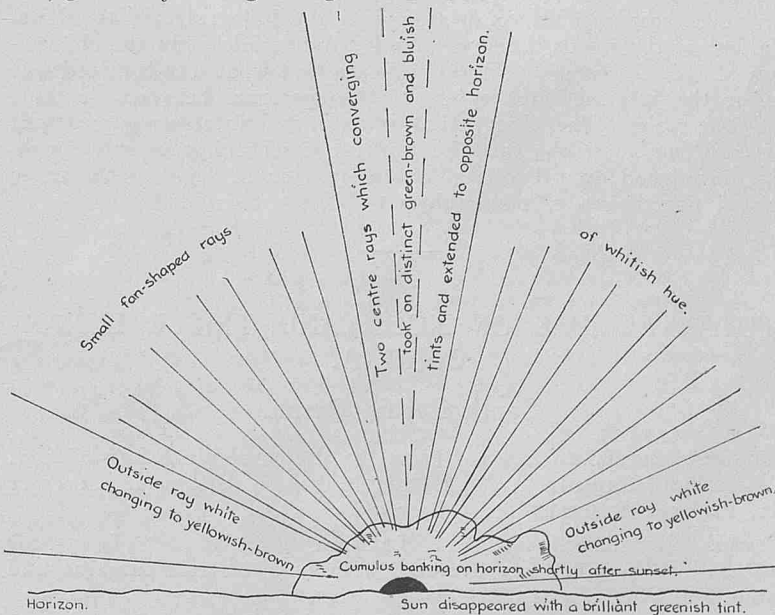 Two centre rays which converging
took on distinct green-brown and bluish
tints and extended to opposite horizon.
Small fan-shaped rays
of whitish hue.
Outside ray white
changing to yellowish-brown
Outside ray white
changing to yellowish-brown.
Cumulus banking on horizon, shortly after sunset.
Horizon.
Sun disappeared with a brilliant greenish tint.